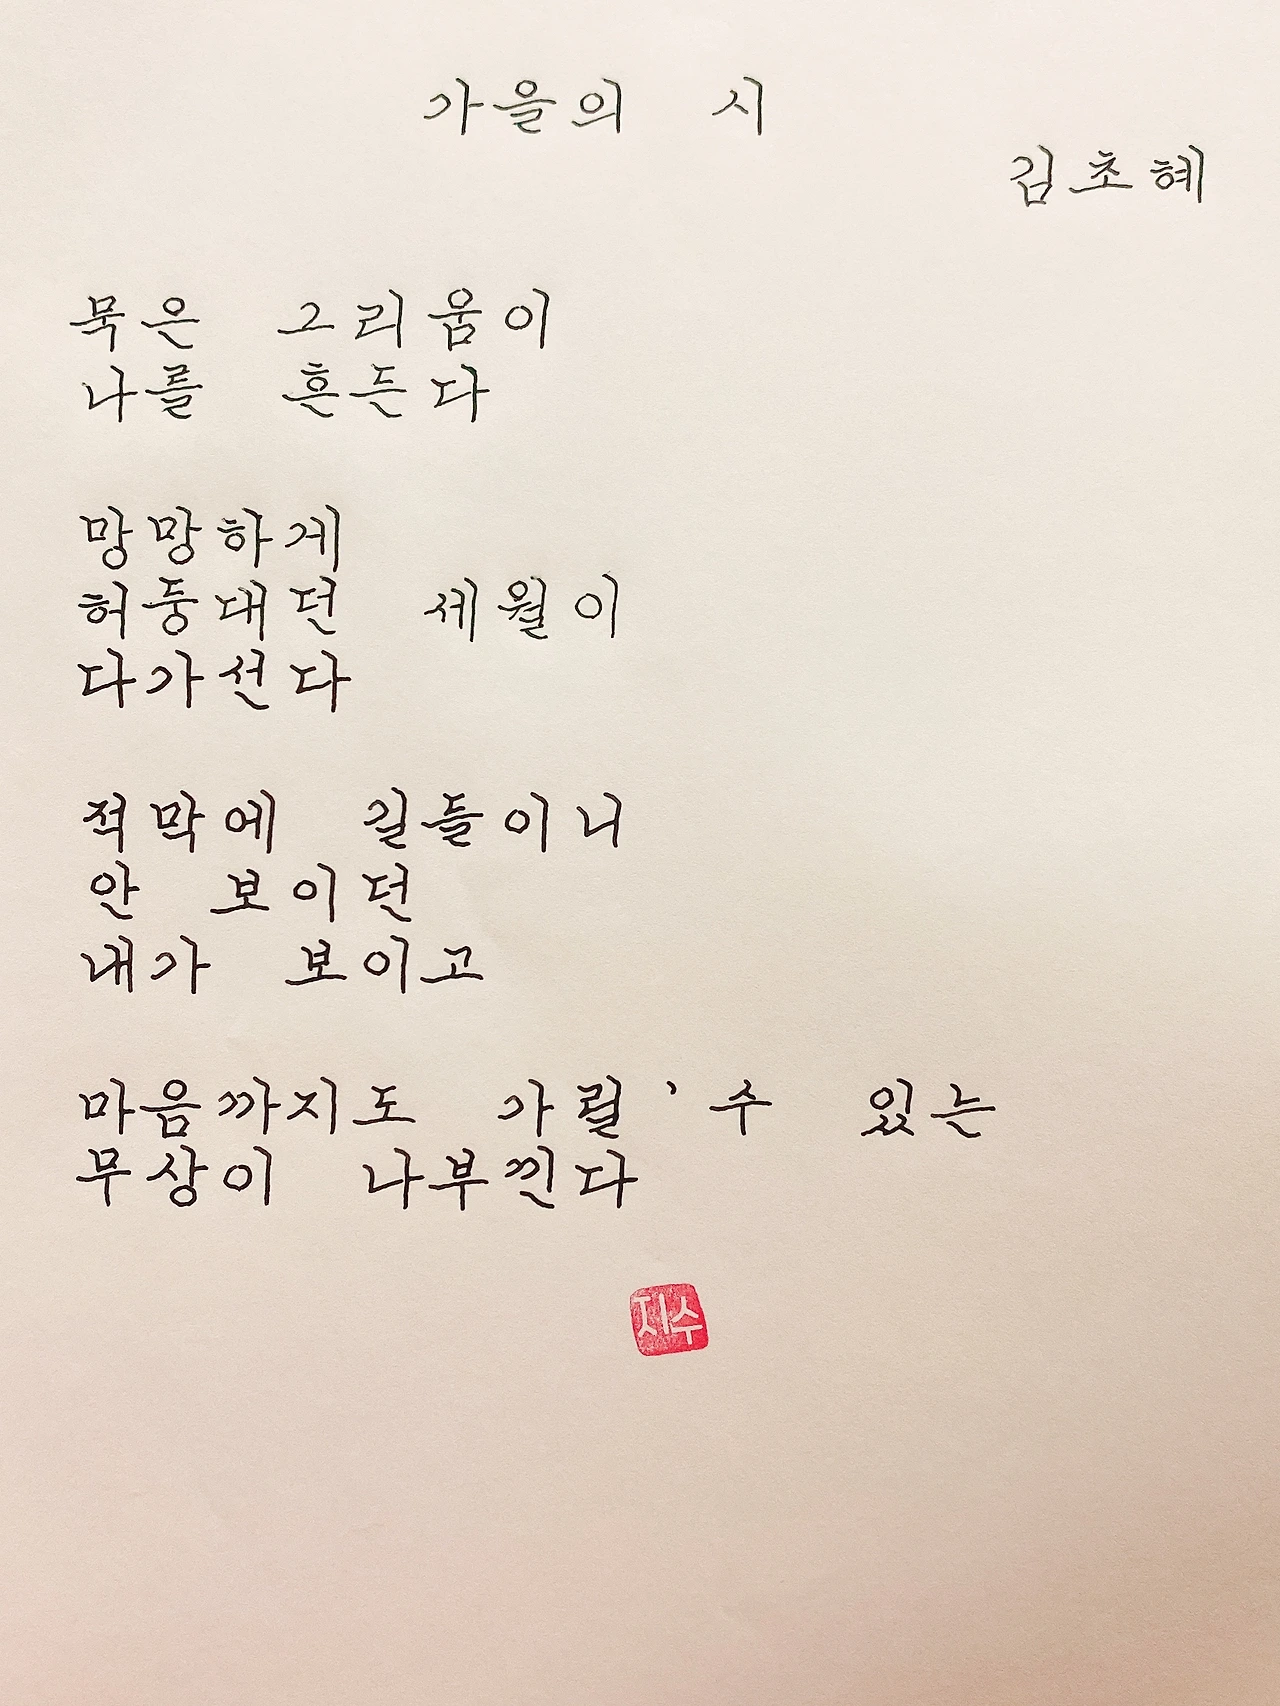 가을의 시
김초혜
묵은 그리움이
나를 흔든다
망망하게
허둥대던 세월이
다가선다
적막에 길들이니
안 보이던
내가 보이고
마음까지도 가릴 수 있는
무상이 나부낀다
지수